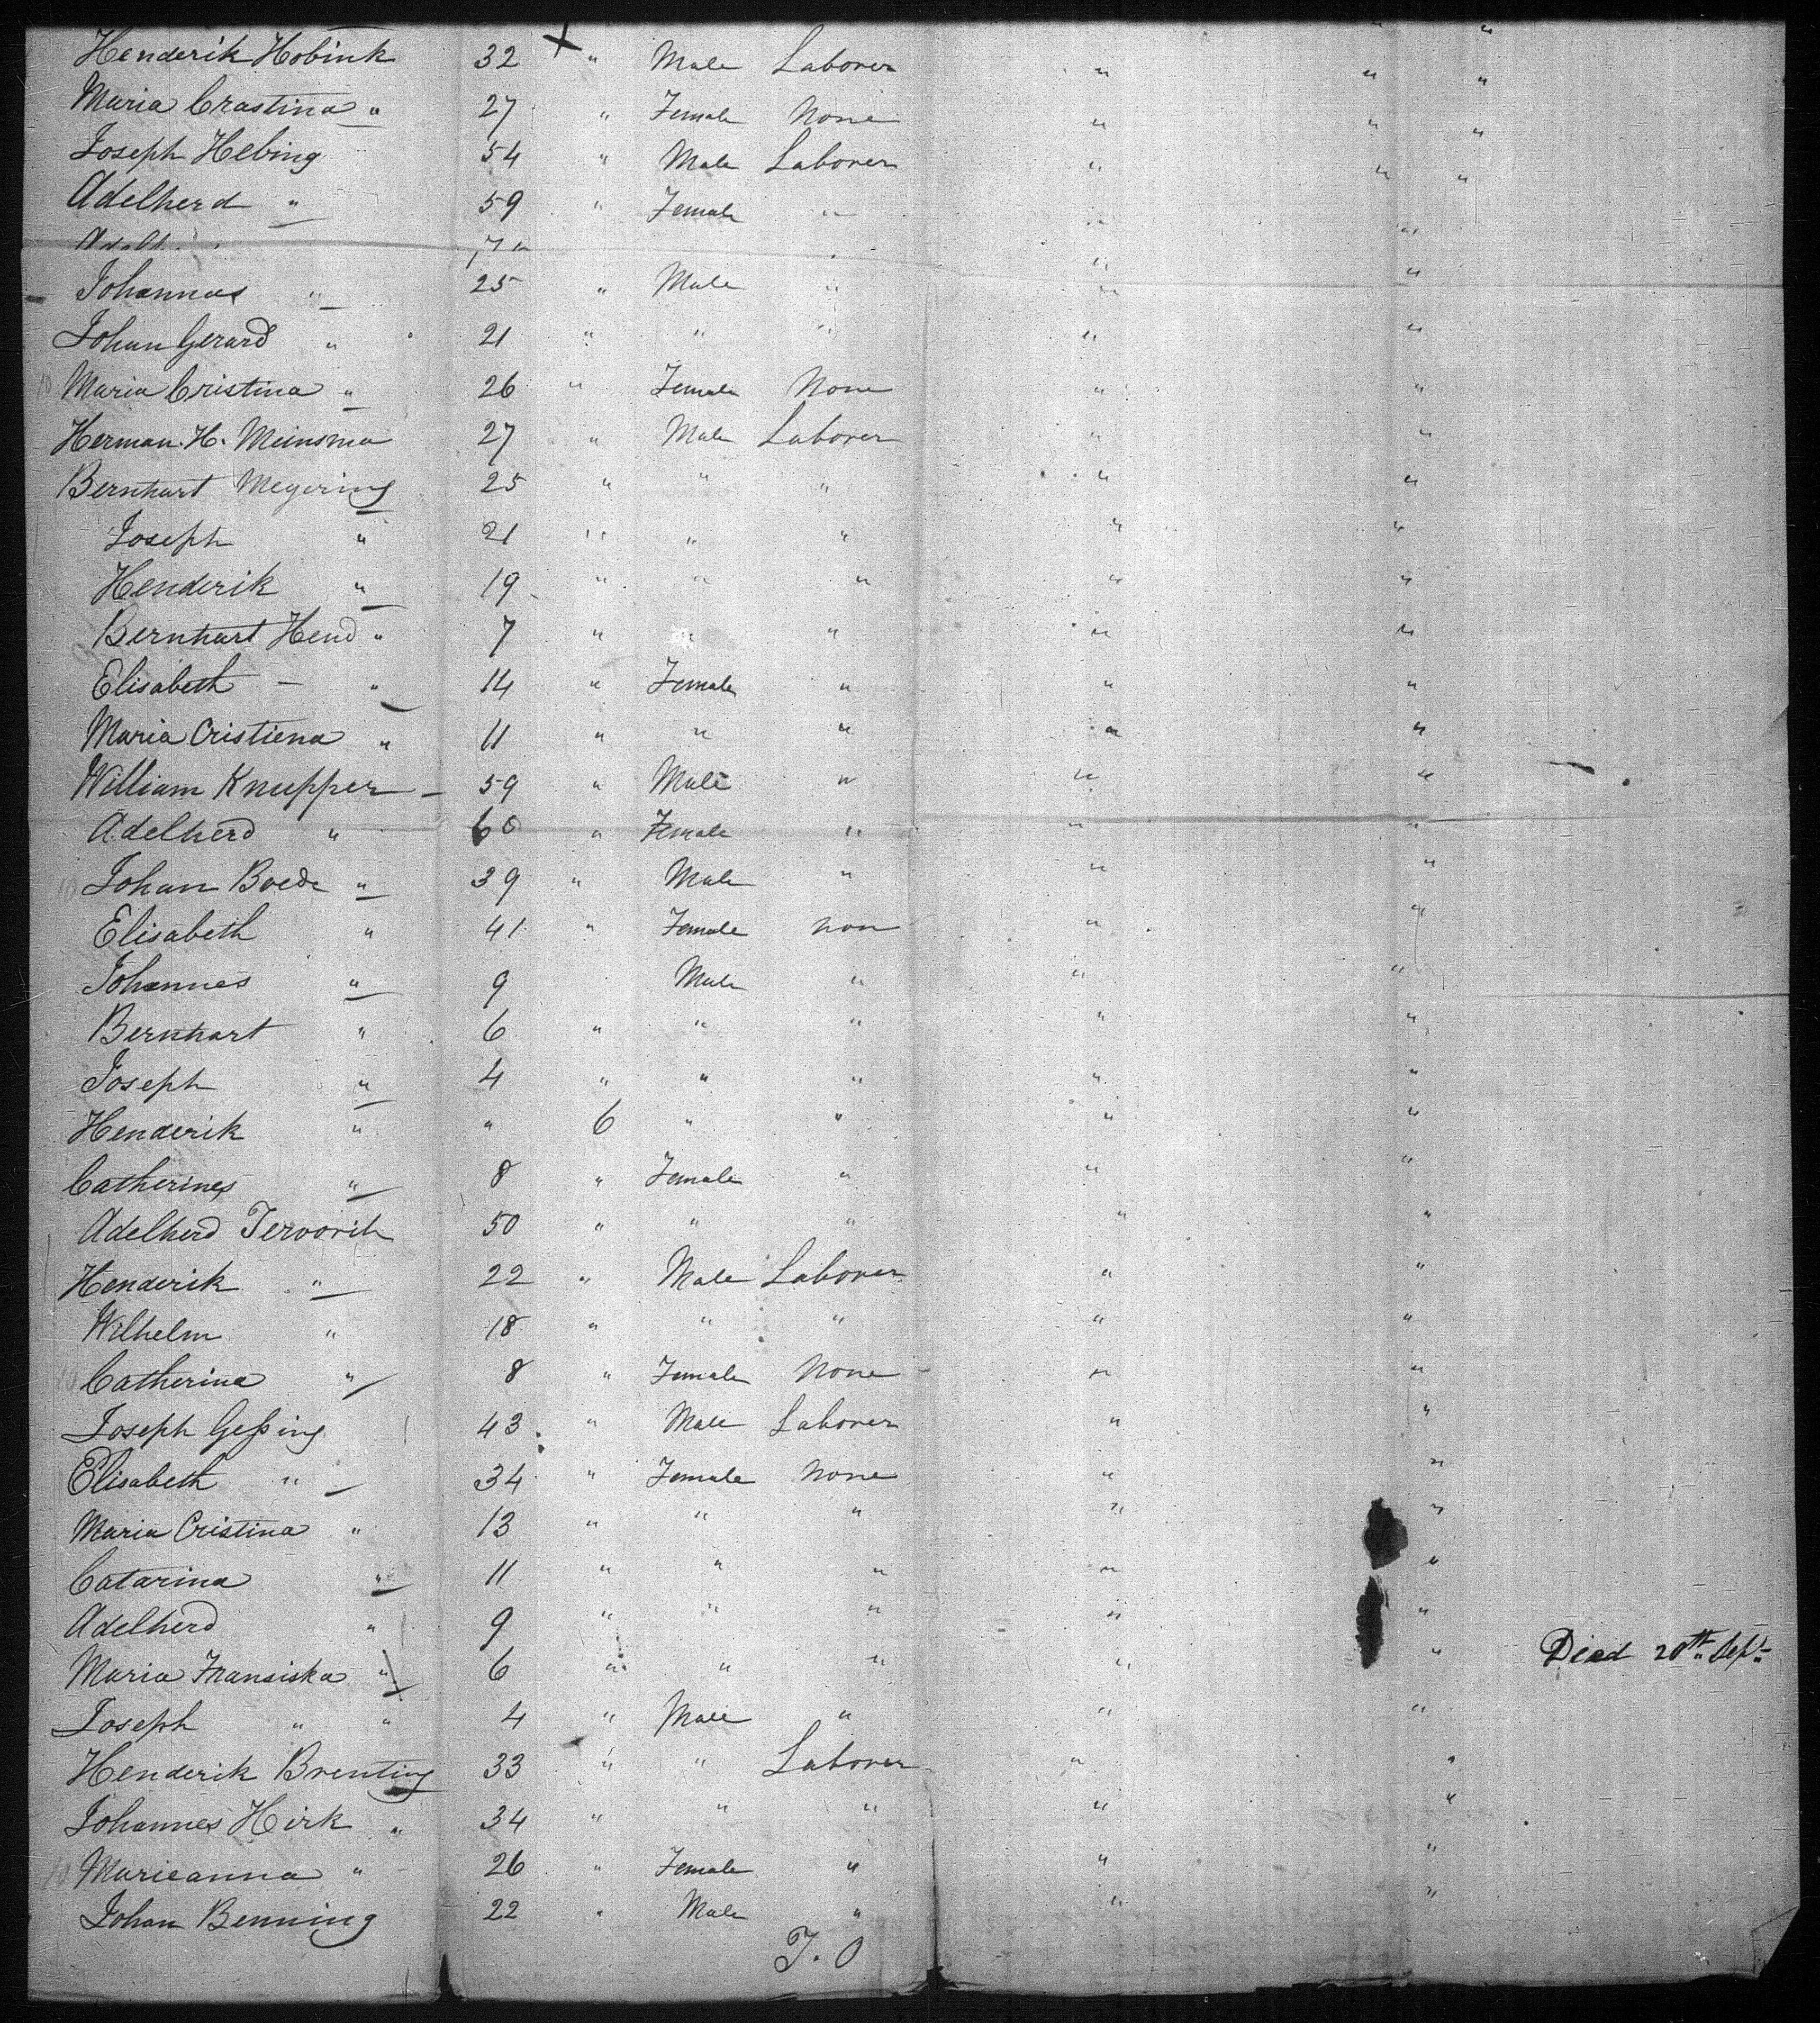 Henderik Hobink 32 " Male Laborer " " "
Maria Crastina " 27 " Female None " " "
Joseph Hebing 54 " Male Laborer " " "
Adelherd " 59 " Female " " "
Johannas " 25 " Male " " "
Johan Gerard " 21 " " " " "
Maria Cristina " 26 " Female None " "
Herman H. Meinsma 27 " Male Laborer " "
Bernhart Megering 25 " " " " "
Joseph " 21 " " " " "
Henderik " 19 " " " " "
Bernhart Hend " 7 " " " " "
Elisabeth - " 14 " Female " " "
Maria Cristiena " 11 " " " " "
William Knupper - 59 " Male " " "
Adelherd " 60 " Female " " "
Johan Boede " 39 " Male " " "
Elisabeth " 41 " Female non " "
Johannes " 9 Male " " "
Bernhart " 6 " " " " "
Joseph " 4 " " " " "
Henderik " " 6 " " " "
Catherines " 8 " Female " " "
Adelherd Tervorih 50 " " " " "
Henderik " 22 " Male Laborer " "
Wilhelm " 18 " " " " "
Catherina " 8 " Female None " "
Joseph Geſsing 43 " Male Laborer " "
Elisabeth " 34 " Female None " "
Maria Cristina " 13 " " " " "
Catarina " 11 " " " " "
Adelherd " 9 " " " " "
Maria Fransiska " 6 " " " " " Died 20th Sept
Joseph " " 4 " Male " " "
Henderik Brenting 33 " " Laborer " "
Johannes Hirk " 34 " " " " "
Marieanna " 26 " Female " " "
Johan Benning 22 " Male " " "
T. O